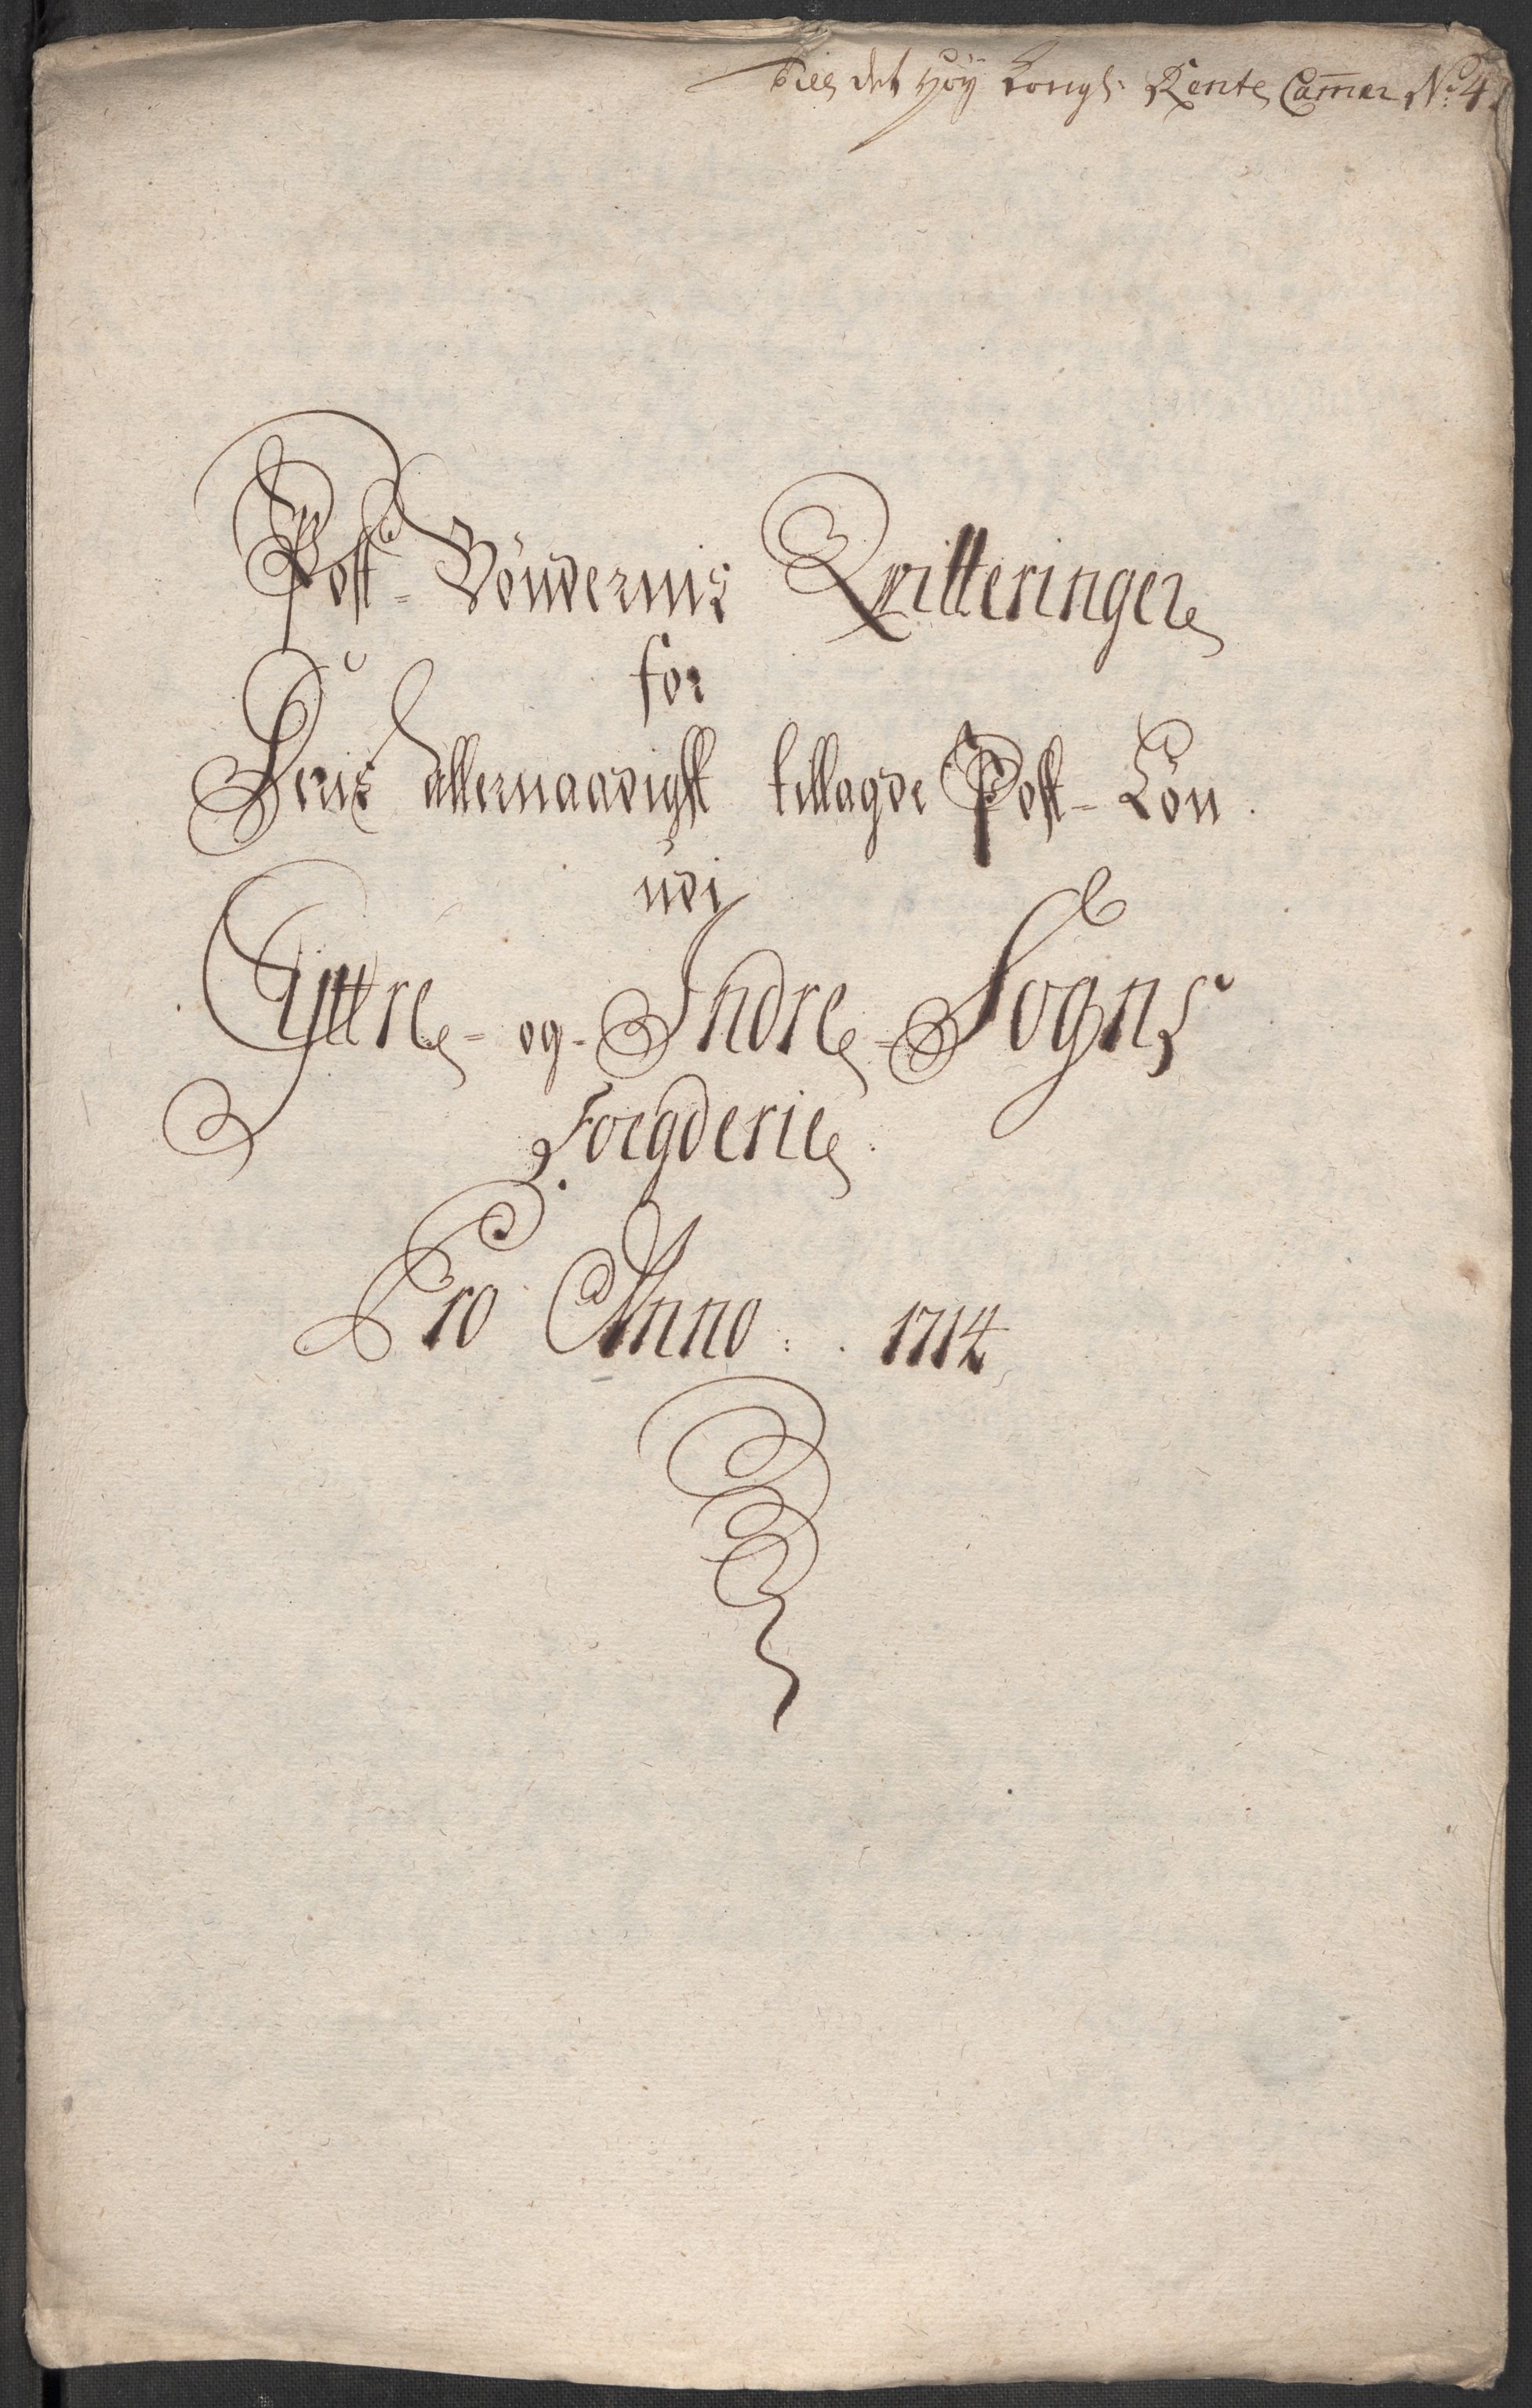 Till det Höy Kongl: Rente Cam̄er No: 4
Post-Böndernis Qvitteringer
for
Deris allernaadigst tillagde Post-Lön
udi
Yttre- og- Indre- Sogns
Foegderie
Pro Anno: . 1714